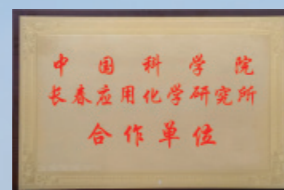 中国科学院
长春应用化学研究所
合作单位